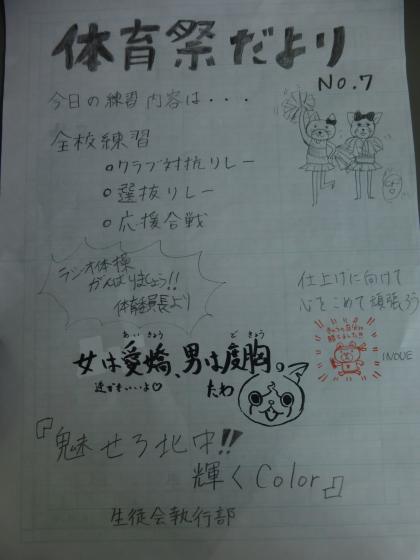 体育祭だより
No.7
今日の練習内容は・・・
全校練習
○クラブ対抗リレー
○選抜リレー
○応援合戦
ラジオ体操
がんばりましょう!!
体育委員長より
仕上げに向けて
心をこめて頑張ろう
INOUE
あいきょう どきょう
女は愛嬌、男は度胸。
逆でもいいよ♡
たわ
『魅せろ北中!!
輝くColor』
生徒会執行部